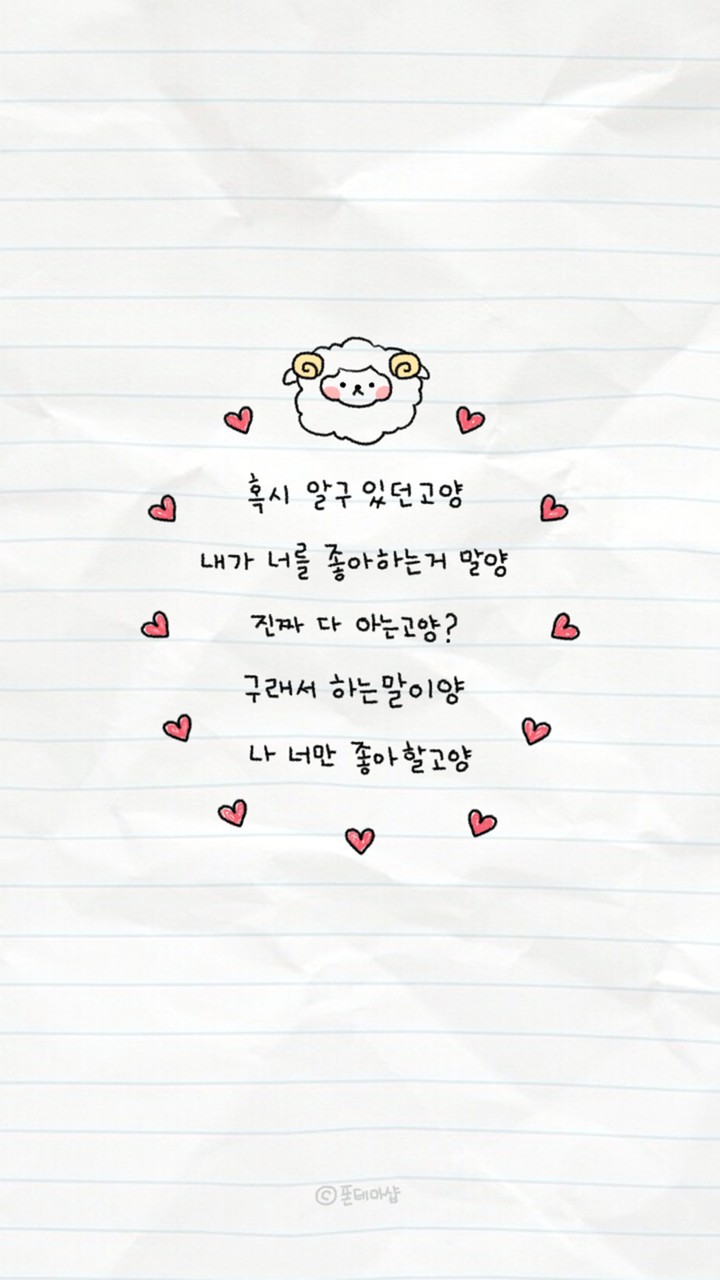 혹시 알구 있던고양
내가 너를 좋아하는거 말양
진짜 다 아는고양?
구래서 하는말이양
나 너만 좋아할고양
©폰테마샵